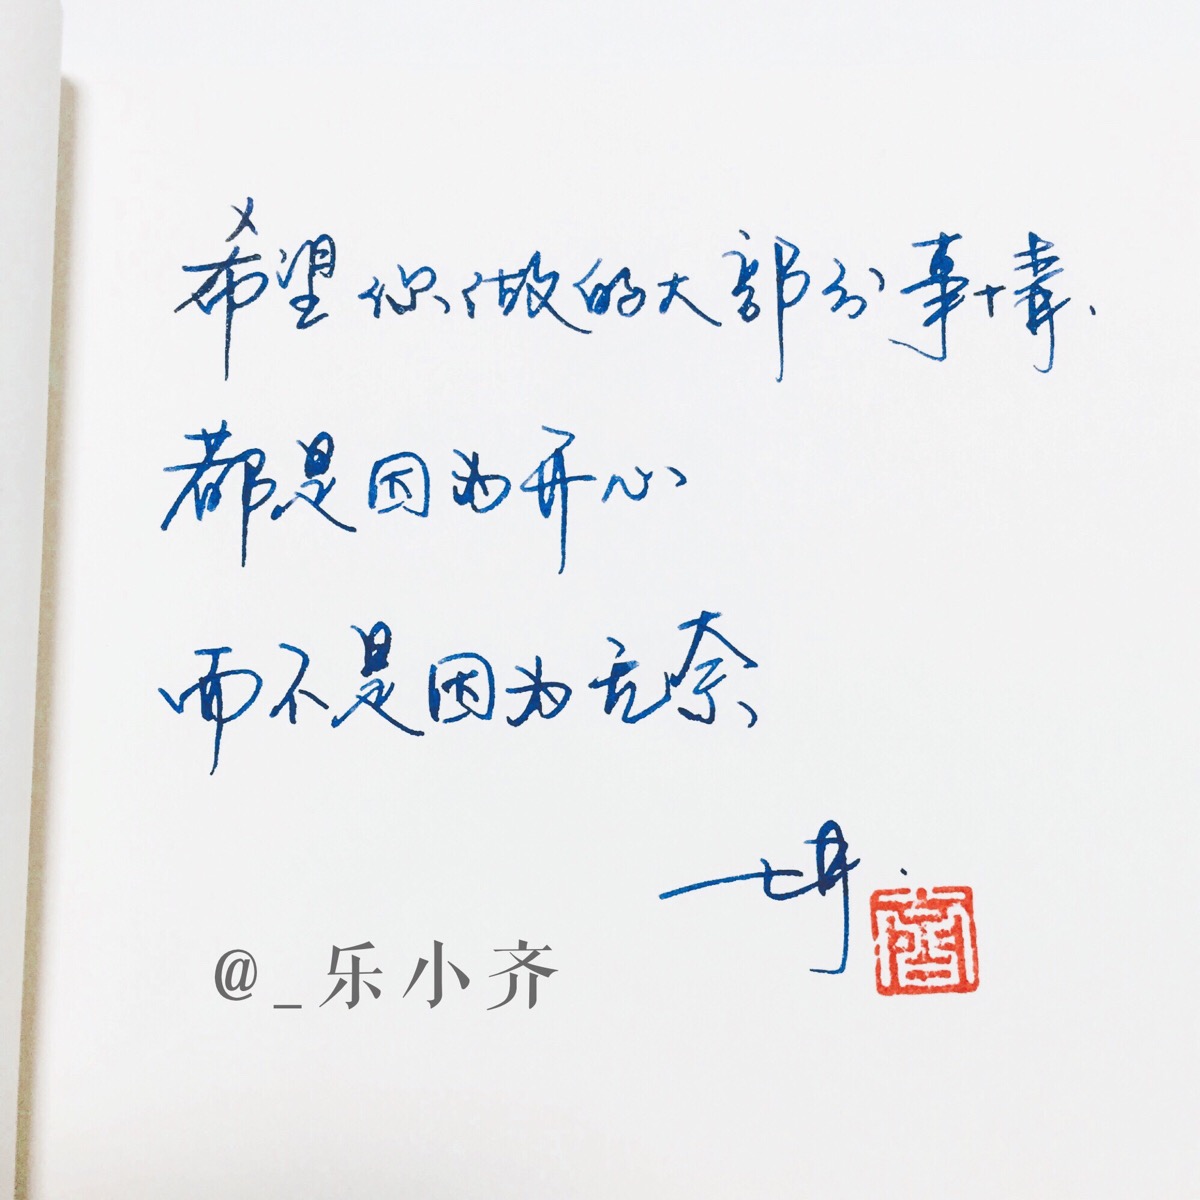 希望你做的大部分事情、
都是因为开心
而不是因为无奈
@_乐小齐